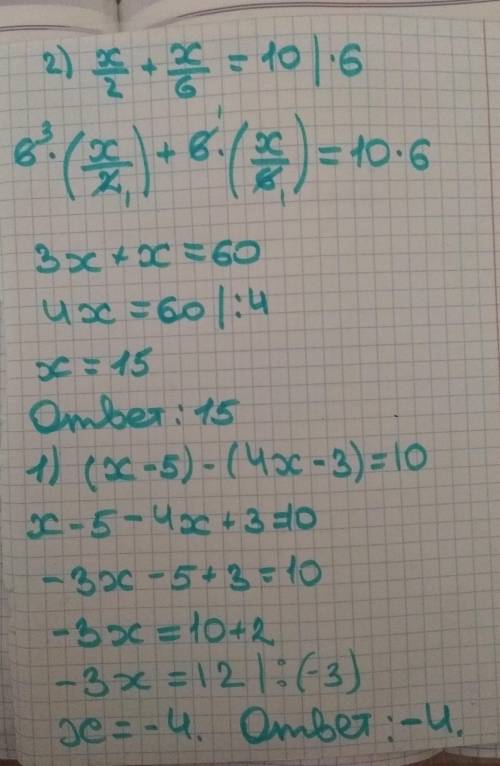 2) x/2 + x/6 = 10 | · 6
6³ · (x/2₁) + 6¹ · (x/6₁) = 10 · 6
3x + x = 60
4x = 60 | : 4
x = 15
Ответ: 15
1) (x - 5) - (4x - 3) = 10
x - 5 - 4x + 3 = 10
-3x - 5 + 3 = 10
-3x = 10 + 2
-3x = 12 | : (-3)
x = -4. Ответ: -4.